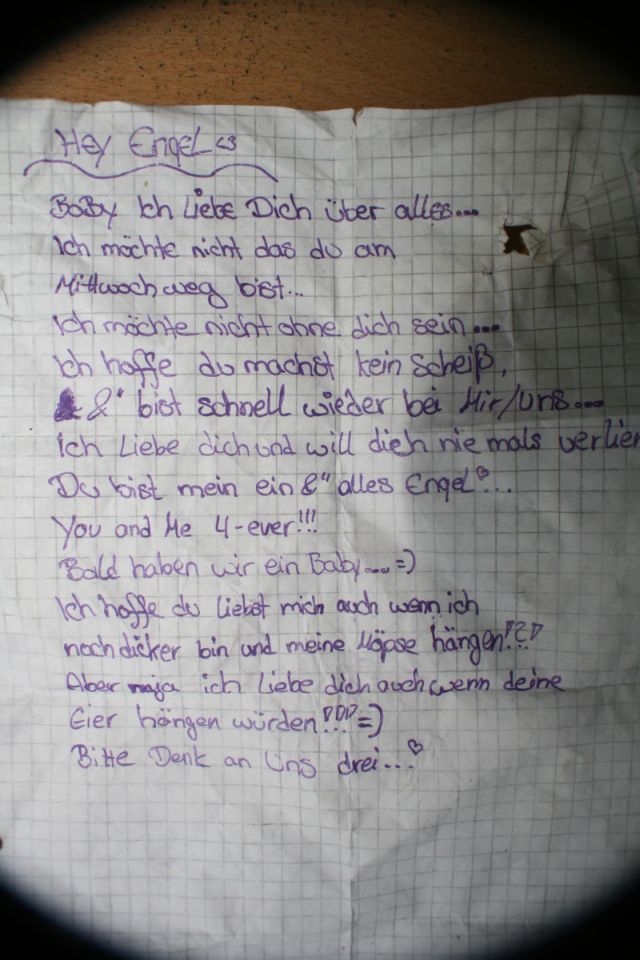 Hey Engel <3
Baby Ich Liebe Dich über alles...
Ich möchte nicht das du am
Mittwoch weg bist...
Ich möchte nicht ohne dich sein...
Ich hoffe du machst kein Scheiß,
&" bist schnell wieder bei Mir/Uns...
Ich Liebe dich und will dich niemals verlier
Du bist mein ein &" alles Engel♡...
You and Me 4-ever!!!
Bald haben wir ein Baby...=)
Ich hoffe du liebst mich auch wenn ich
noch dicker bin und meine Möpse hängen!?!
Aber naja ich liebe dich auch wenn deine
Eier hängen würden!!!=)
Bitte Denk an Uns drei...♡